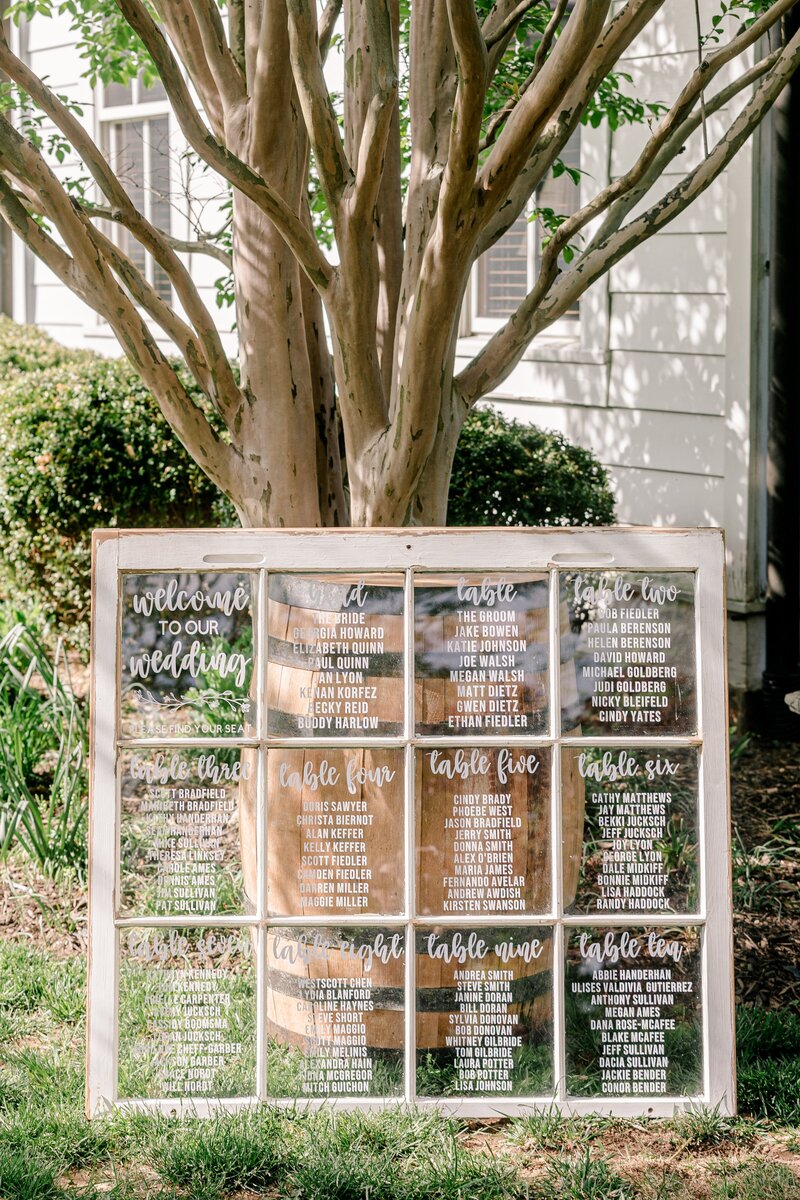 welcome
TO OUR
wedding
PLEASE FIND YOUR SEAT
THE BRIDE
GEORGIA HOWARD
ELIZABETH QUINN
PAUL QUINN
IAN LYON
KEVAN KORFEZ
BECKY REID
BUDDY HARLOW
table
THE GROOM
JAKE BOWEN
KATIE JOHNSON
JOE WALSH
MEGAN WALSH
MATT DIETZ
GWEN DIETZ
ETHAN FIEDLER
table two
BOB FIEDLER
PAULA BERENSON
HELEN BERENSON
DAVID HOWARD
MICHAEL GOLDBERG
JUDI GOLDBERG
NICKY BLEIFELD
CINDY YATES
table three
SCOTT BRADFIELD
MARIBETH BRADFIELD
KATHY HANDERHAN
SEAN HANDERHAN
MIKE SULLIVAN
THERESA LINKSEY
CAROLE AMES
DENNIS AMES
SULLIVAN
PAT SULLIVAN
table four
DORIS SAWYER
CHRISTA BIERNOT
ALAN KEFFER
KELLY KEFFER
SCOTT FIEDLER
CAMDEN FIEDLER
DARREN MILLER
MAGGIE MILLER
table five
CINDY BRADY
PHOEBE WEST
JASON BRADFIELD
JERRY SMITH
DONNA SMITH
ALEX O'BRIEN
MARIA JAMES
FERNANDO AVELAR
ANDREW AWDISH
KIRSTEN SWANSON
table six
CATHY MATTHEWS
JAY MATTHEWS
BEKKI JUCKSCH
JEFF JUCKSCH
JOY LYON
GEORGE LYON
DALE MIDKIFF
BONNIE MIDKIFF
LISA HADDOCK
RANDY HADDOCK
table seven
KENNEDY
KENNEDY
CARPENTER
JUCKSCH
BOOMSMA
JUCKSCH
CHEFF-GARBER
GARBER
NORDT
WILL NORDT
table eight
WESTSCOTT CHEN
LYDIA BLANFORD
CAROLINE HAYNES
STEVE SHORT
EMILY MAGGIO
SCOTT MAGGIO
EMILY MELINIS
ALEXANDRA HAIN
MCGREGOR
MITCH GUICHON
table nine
ANDREA SMITH
STEVE SMITH
JANINE DORAN
BILL DORAN
SYLVIA DONOVAN
BOB DONOVAN
WHITNEY GILBRIDE
TOM GILBRIDE
LAURA POTTER
BOB POTTER
LISA JOHNSON
table ten
ABBIE HANDERHAN
ULISES VALDIVIA GUTIERREZ
ANTHONY SULLIVAN
MEGAN AMES
DANA ROSE-MCAFEE
BLAKE MCAFEE
JEFF SULLIVAN
DACIA SULLIVAN
JACKIE BENDER
CONOR BENDER